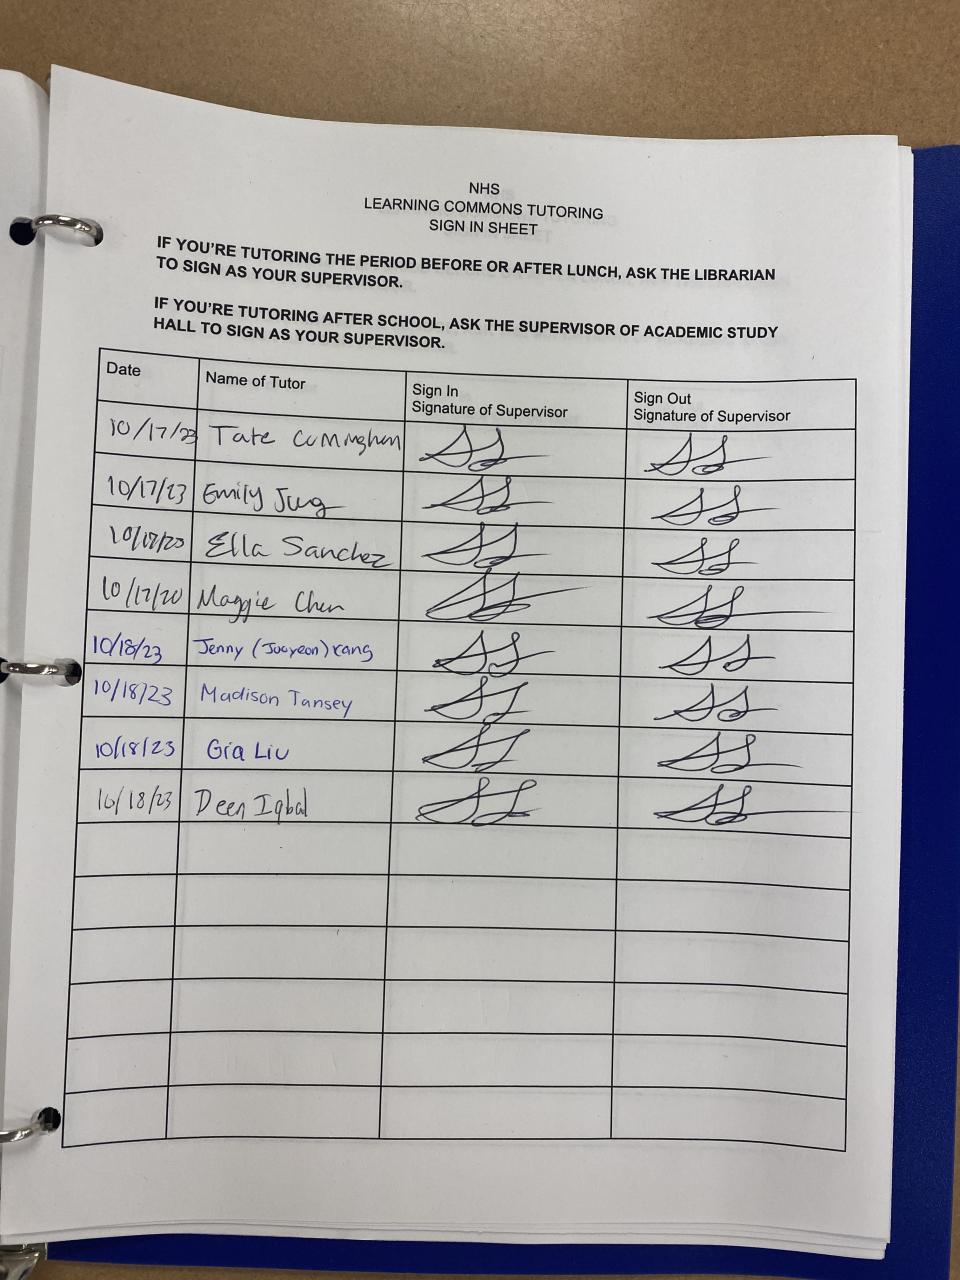 NHS
LEARNING COMMONS TUTORING
SIGN IN SHEET
IF YOU'RE TUTORING THE PERIOD BEFORE OR AFTER LUNCH, ASK THE LIBRARIAN
TO SIGN AS YOUR SUPERVISOR.
IF YOU'RE TUTORING AFTER SCHOOL, ASK THE SUPERVISOR OF ACADEMIC STUDY
HALL TO SIGN AS YOUR SUPERVISOR.
Date Name of Tutor Sign In Sign Out
Signature of Supervisor Signature of Supervisor
10/17/23 Tate
10/17/23 Emily Jung
Ella Sanchez
10/17/20 Maggie Chen
10/18/23 Jenny (Jooyeon) Kang
10/18/23 Madison Tansey
10/18/23 Gia Liu
10/18/23 Deen Iqbal